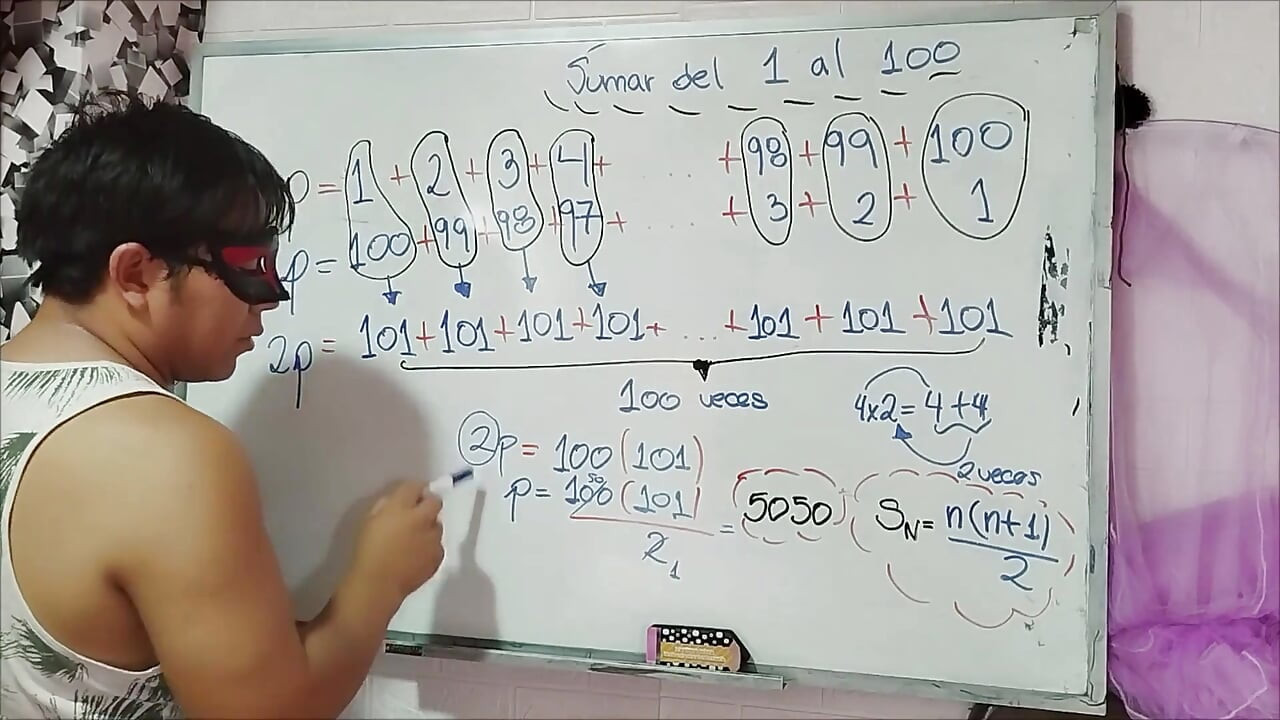 Sumar del 1 al 100
p = 1 + 2 + 3 + 4 + ..... + 98 + 99 + 100
p = 100 + 99 + 98 + 97 + ..... + 3 + 2 + 1
2p = 101 + 101 + 101 + 101 + ... + 101 + 101 + 101
100 veces
4x2 = 4 + 4
2 veces
2p = 100 (101)
p = 100 (101) / 2 = 5050
50
1
S_N = n(n+1) / 2